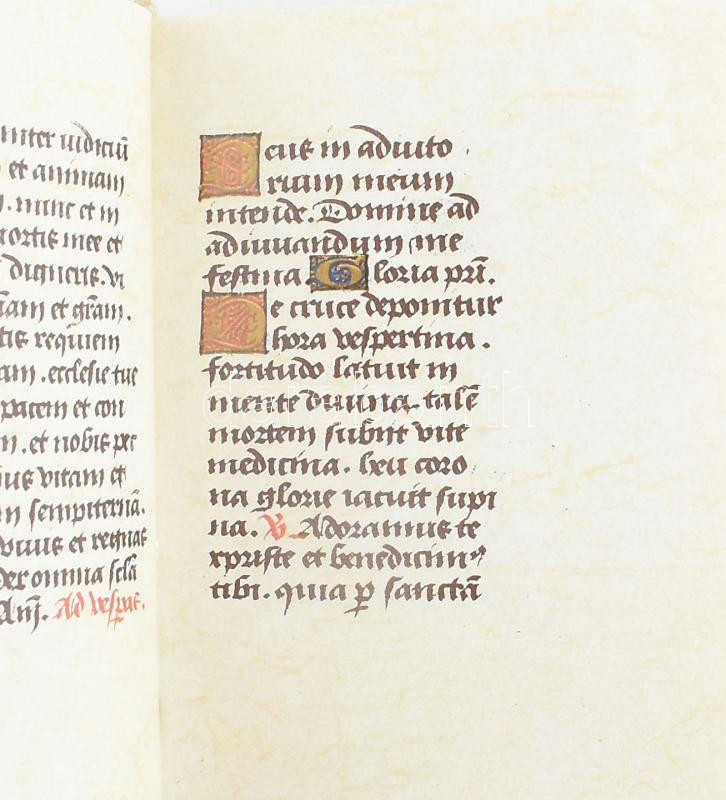 inter iudiciū
et animam
. nunc et in
mortis mee et
digneris. vi
iam et grām.
tis requiem
am. ecclesie tue
pacem et con
n. et nobis pec
bus vitam et
m sempiternā.
vivis et regnas
per omnia scla
Am̄. Ad vesp̄as.
Deus in adiuto
rium meum
intende. Domine ad
adiuvandum me
festina. Gloria pr̄i.
De cruce deponitur
hora vespertina.
fortitudo latuit in
mente divina. talē
mortem subiit vite
medicina. heu coro
na glorie iacuit supi
na. V̄ Adoramus te
xpriste et benedicimꝰ
tibi. quia ꝑ sanctā